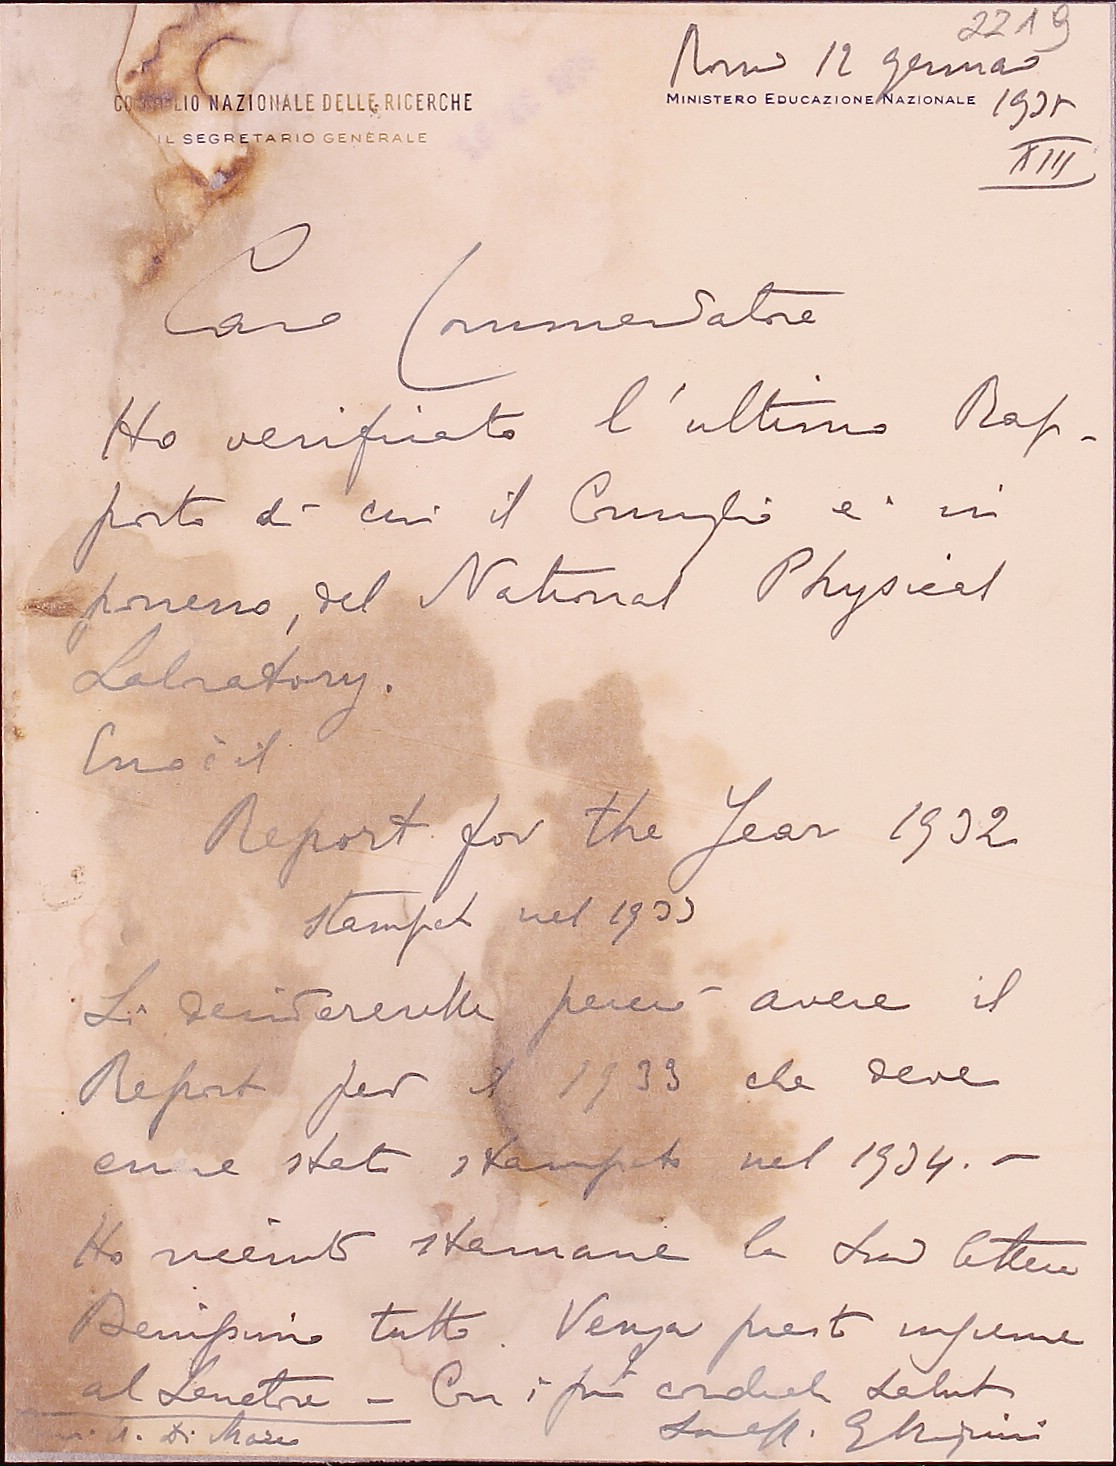 2219
Roma 12 gennaio
CONSIGLIO NAZIONALE DELLE RICERCHE
MINISTERO EDUCAZIONE NAZIONALE
1935
IL SEGRETARIO GENERALE
XIII
Caro Commendatore
Ho verificato l'ultimo Rap-
porto di cui il Consiglio e' in
possesso, del National Physical
Laboratory.
Esso è il
Report for the Year 1932
stampato nel 1933
Si desidererebbe perciò avere il
Report per il 1933 che deve
essere stato stampato nel 1934. -
Ho ricevuto stamane la Sua lettera
Benissimo tutto. Venga presto insieme
al Senatore - Con i più cordiali saluti
A. Di Marzo
Suo aff.